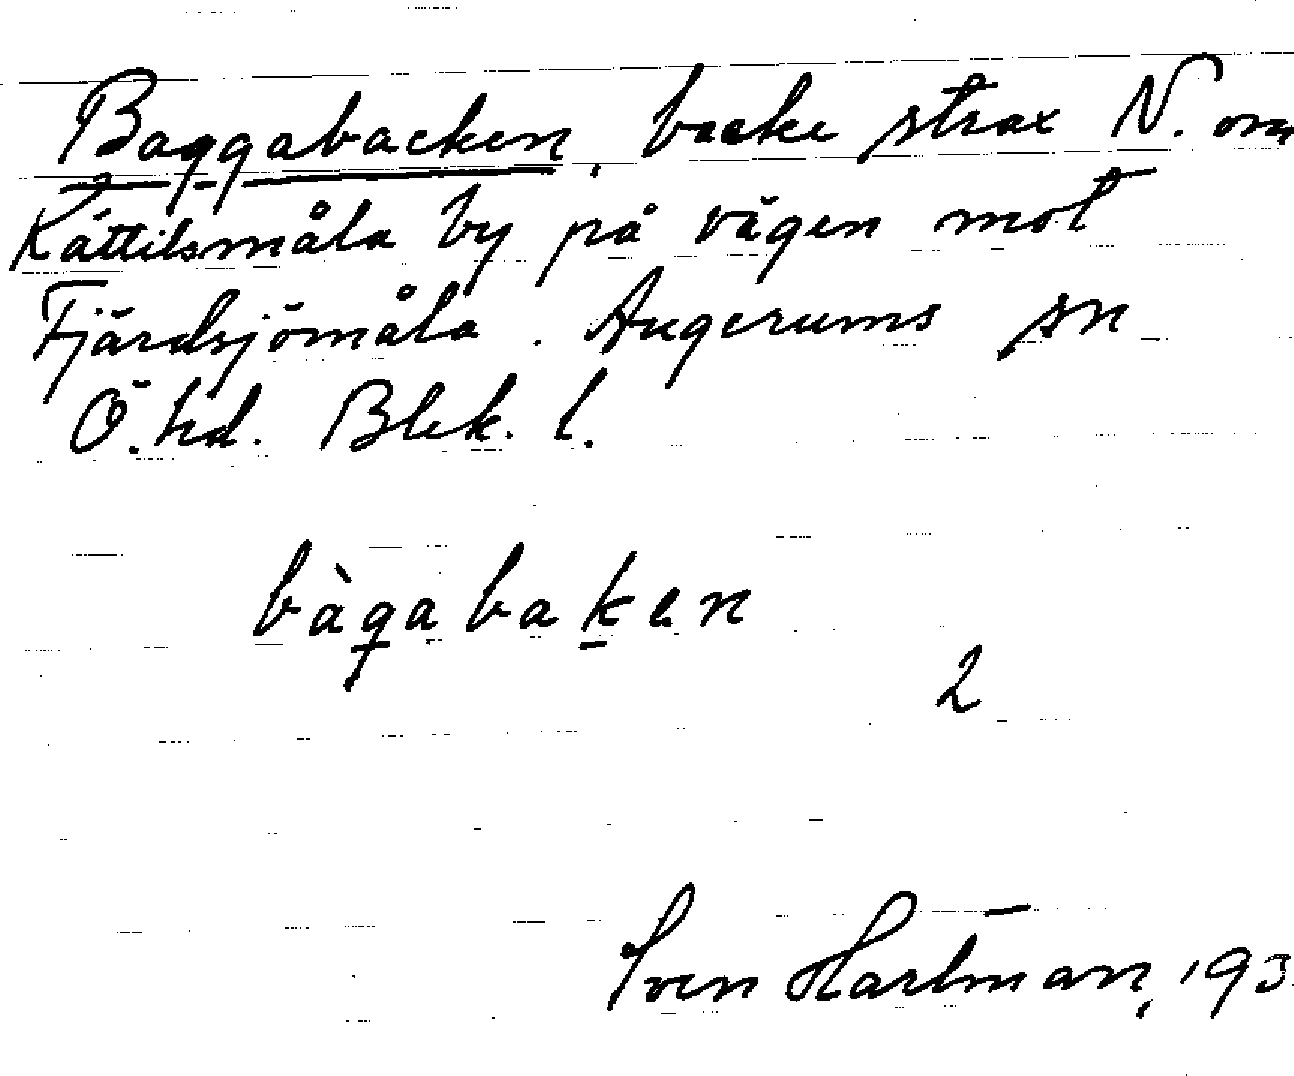 Baggabacken, backe strax N. om
Kättilsmåla by på vägen mot
Fjärdsjömåla. Augerums sn
Ö. hd. Blek. l.
bàgabaken
2
Sven Hartman, 193